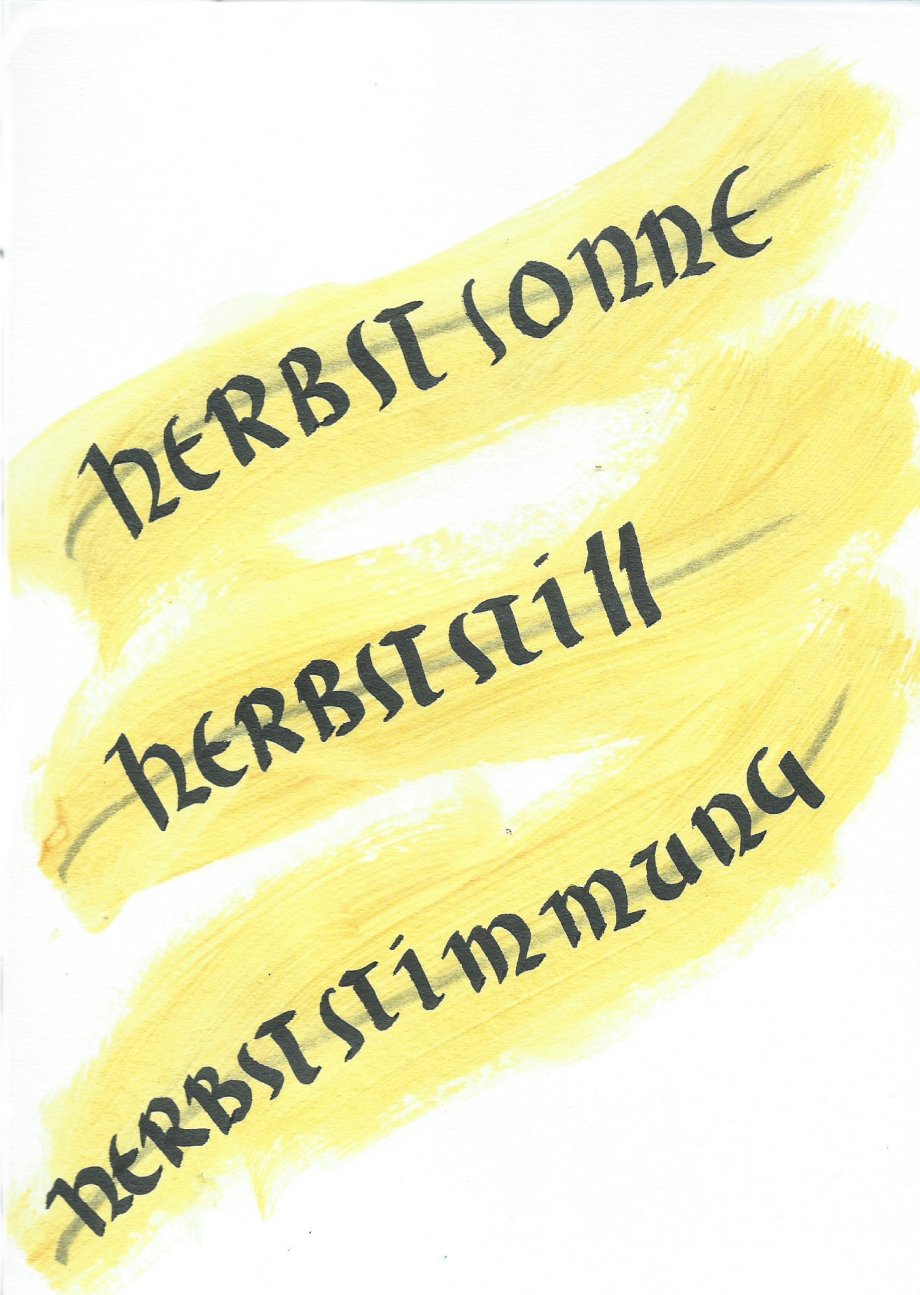 HERBST SONNE
HERBSTSTILL
HERBSTSTIMMUNG